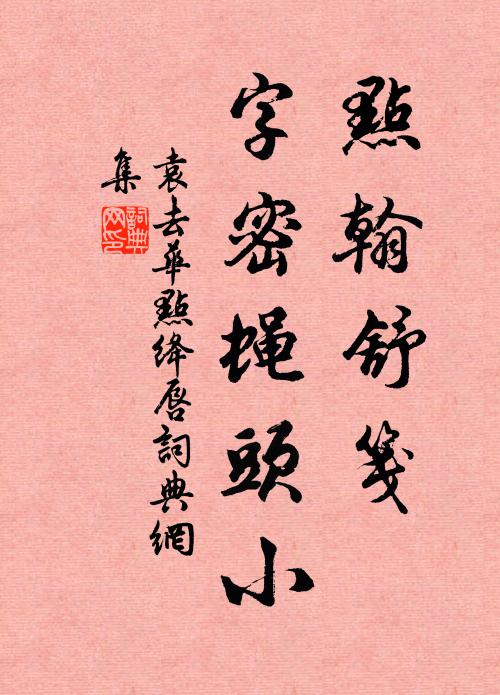 點翰舒箋
字密蝇頭小
袁去華點絳唇詞典網
集
詞典
网印